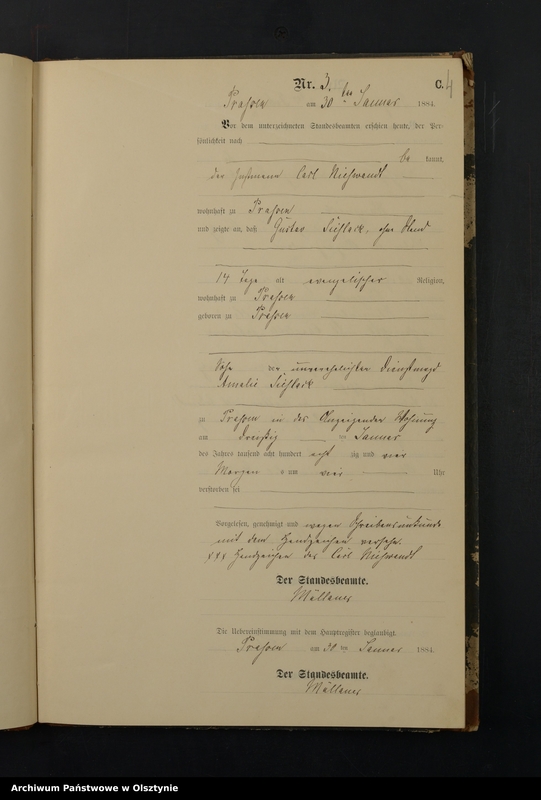 Nr. 3. C. 4
am 30 ten Januar 1884.
Vor dem unterzeichneten Standesbeamten erschien heute, der Per-
sönlichkeit nach
be kannt,
der Carl
wohnhaft zu
und zeigte an, daß Gustav ohne Stand
14 Tage alt evangelischer Religion,
wohnhaft zu
geboren zu
Sohn der unverehelichten Dienstmagd
Amalie
zu in des Anzeigenden Wohnung
am dreißig ten Januar
des Jahres tausend acht hundert acht zig und vier
Morgens um vier Uhr
verstorben sei
Vorgelesen, genehmigt und wegen Schreibensunkunde
mit dem Handzeichen versehen.
xxx Handzeichen des Carl
Der Standesbeamte.
Die Uebereinstimmung mit dem Hauptregister beglaubigt.
am 30 ten Januar 1884.
Der Standesbeamte.
Archiwum Państwowe w Olsztynie